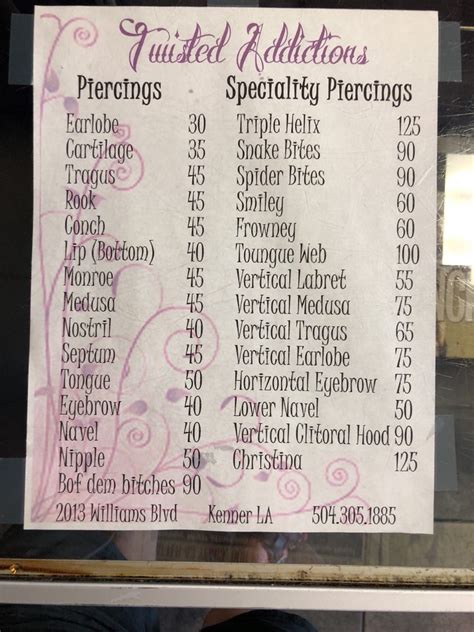 Twisted Addictions
Piercings
Earlobe 30
Cartilage 35
Tragus 45
Rook 45
Conch 45
Lip (Bottom) 40
Monroe 45
Medusa 45
Nostril 40
Septum 45
Tongue 50
Eyebrow 40
Navel 40
Nipple 50
Bof dem bitches 90
Speciality Piercings
Triple Helix 125
Snake Bites 90
Spider Bites 90
Smiley 60
Frowney 60
Toungue Web 100
Vertical Labret 55
Vertical Medusa 75
Vertical Tragus 65
Vertical Earlobe 75
Horizontal Eyebrow 75
Lower Navel 50
Vertical Clitoral Hood 90
Christina 125
2013 Williams Blvd Kenner LA 504.305.1885